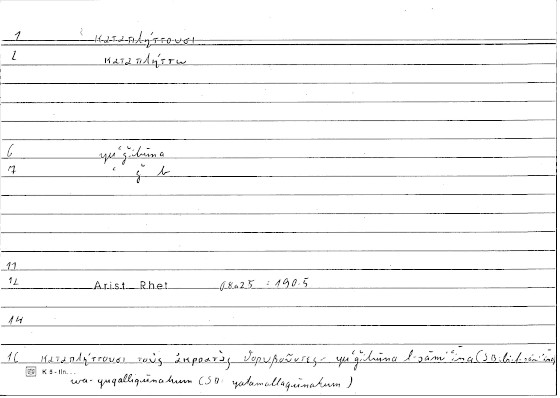 1 καταπλήττουσι
2 καταπλήττω
6 yuʿǧibūna
7 ʿ ǧ b
11
12 Arist Rhet 08a25 : 190.5
14
16 καταπλήττουσι τοὺς ἀκροατὰς θορυβοῦντες – yuʿǧibūna l-sāmiʿīna (
wa-yuqalliqūnahum (SB: yatamallaqūnahum)